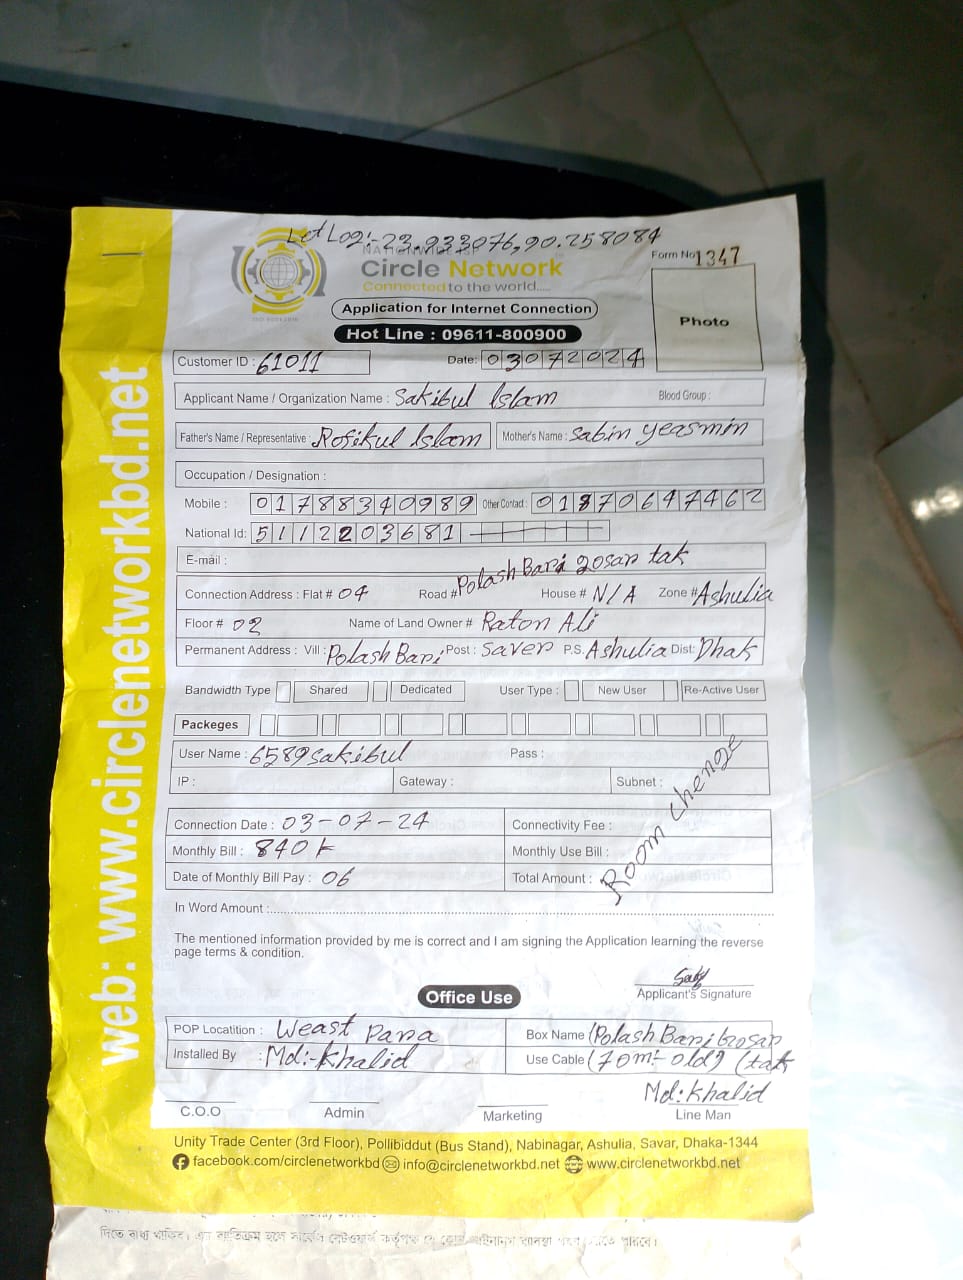 Let Log:-23.933076,90.258084
NATIONWIDE ISP
Circle Network
Connected to the world.....
ISO 9001:2015
Form No 1347
Application for Internet Connection
Photo
Hot Line : 09611-800900
Customer ID : 61011 Date: 03072024
Applicant Name / Organization Name : Sakibul Islam Blood Group :
Father's Name / Representative : Rofikul Islam Mother's Name : Sabin yeasmin
Occupation / Designation :
Mobile : 01788340989 Other Contact : 01870647462
National Id: 5112203681
E-mail :
Connection Address : Flat # 04 Road # Polash Bari gosar tak House # N/A Zone # Ashulia
Floor # 02 Name of Land Owner # Raton Ali
Permanent Address : Vill : Polash Bari Post : Saver P.S. Ashulia Dist: Dhak
Bandwidth Type Shared Dedicated User Type : New User Re-Active User
Packeges
User Name : 6589sakibul Pass :
IP : Gateway : Subnet :
Room Chenge
Connection Date : 03-07-24 Connectivity Fee :
Monthly Bill : 840 k Monthly Use Bill :
Date of Monthly Bill Pay : 06 Total Amount :
In Word Amount :
The mentioned information provided by me is correct and I am signing the Application learning the reverse
page terms & condition.
Applicant's Signature
Office Use
POP Locatition : Weast para Box Name (Polash Bari Gosar
Installed By : Md:-Khalid Use Cable (70m:- old) (tak
Md:Khalid
C.O.O Admin Marketing Line Man
Unity Trade Center (3rd Floor), Pollibiddut (Bus Stand), Nabinagar, Ashulia, Savar, Dhaka-1344
facebook.com/circlenetworkbd info@circlenetworkbd.net www.circlenetworkbd.net
web: www.circlenetworkbd.net